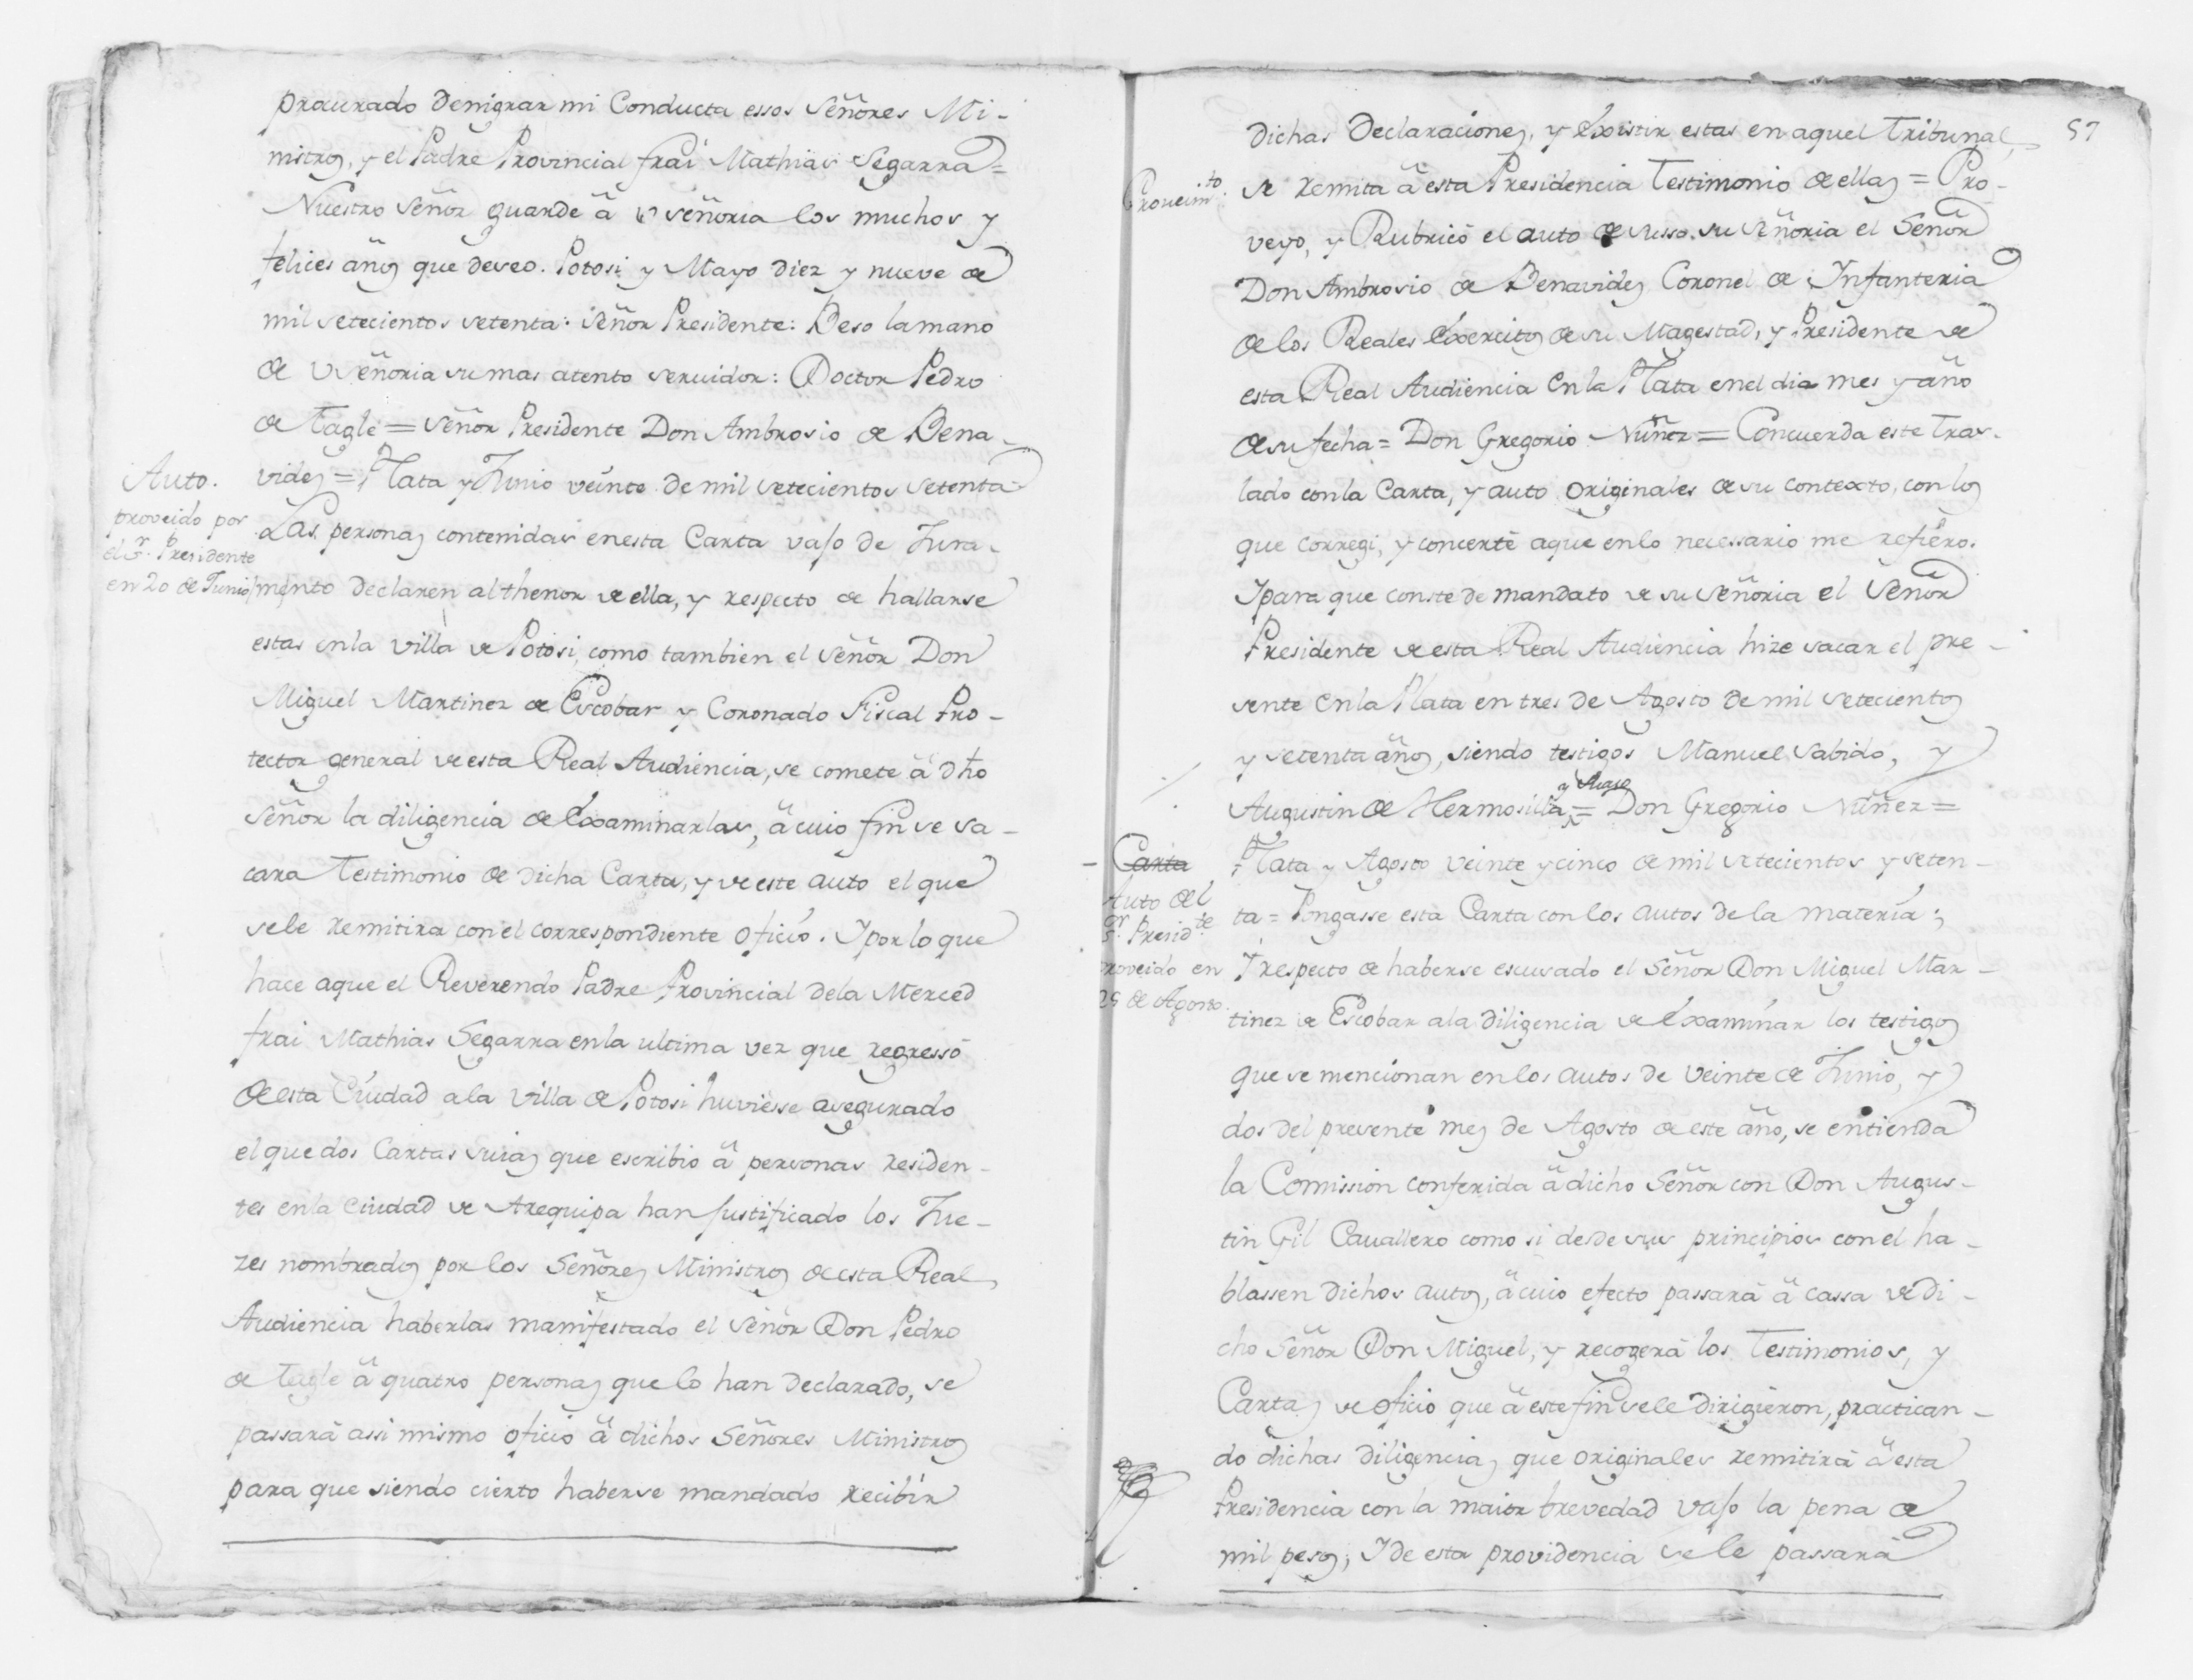 procurado denigrar mi Conducta essos Señores Mi-
nistros, y el Padre Provincial frai Mathias Segarra=
Nuestro Señor guarde â vuseñoria los muchos y
felices años que deseo. Potosi y Mayo diez y nueve de
mil setecientos setenta: Señor Presidente: Beso la mano
de Vseñoria su mas atento servidor: Doctor Pedro
de Tagle = Señor Presidente Don Ambrosio de Bena-
vides = Plata y Junio veinte de mil setecientos setenta=
Auto.
proveido por
el Sr. Presidente
en 20 de Junio
Las personas contenidas en esta Carta vajo de Jura-
mento declaren al thenor de ella, y respecto de hallarse
estas en la villa de Potosi, como tambien el Señor Don
Miguel Martinez de Escobar y Coronado Fiscal Pro-
tector general de esta Real Audiencia, se comete â dho
Señor la diligencia de Examinarlas, â cuio fin se sa-
cara Testimonio de dicha Carta, y de este auto el que
se le remitira con el correspondiente oficio. Y por lo que
hace a que el Reverendo Padre Provincial de la Merced
frai Mathias Segarra en la ultima vez que regressó
de esta Ciudad a la Villa de Potosi huviesse asegurado
el que dos Cartas suias que escribio â personas residen-
tes en la Ciudad de Arequipa han justificado los Jue-
zes nombrados por los Señores Ministros de esta Real
Audiencia haberlas manifestado el Señor Don Pedro
de Tagle â quatro personas que lo han declarado, se
passarà assi mismo oficio â dichos Señores Ministros
para que siendo cierto haberse mandado recibir
57
dichas Declaraciones, y Existir estas en aquel Tribunal,
Proveimto.
se remita â esta Presidencia Testimonio de ellas = Pro-
veyo, y Rubricó el auto de susso su Señoria el Señor
Don Ambrosio de Benavides Coronel de Infanteria
de los Reales Exercitos de su Magestad, y Presidente de
esta Real Audiencia en la Plata en el dia mes y año
de su fecha = Don Gregorio Nuñez = Concuerda este tras-
lado con la Carta, y auto originales de su contexto, con los
que corregi, y concerté a que en lo necessario me refiero.
Y para que conste de mandato de su Señoria el Señor
Presidente de esta Real Audiencia hize sacar el pre-
sente en la Plata en tres de Agosto de mil setecientos
y setenta años, siendo testigos Manuel Sabido, y
Augustin de Hermosilla = Don Gregorio Nuñez =
Carta
Auto del
Sr. Presidte
proveido en
25 de Agosto.
Plata y Agosto veinte y cinco de mil setecientos y seten-
ta = Pongasse esta Carta con los autos de la materia;
Y respecto de haberse escusado el Señor Don Miguel Mar-
tinez de Escobar a la diligencia de Examinar los testigos
que se mencionan en los autos de veinte de Junio, y
dos del presente mes de Agosto de este año, se entienda
la Comission conferida â dicho Señor con Don Augus-
tin Gil Cavallero como si desde sus principios con el ha-
blassen dichos autos, â cuio efecto passarà â cassa de di-
cho Señor Don Miguel, y recogerà los Testimonios, y
Cartas de oficio que â este fin se le dirigieron, practican-
do dichas diligencias que originales remitirà â esta
Presidencia con la maior brevedad vajo la pena de
mil pesos; Y de esta providencia se le passarà